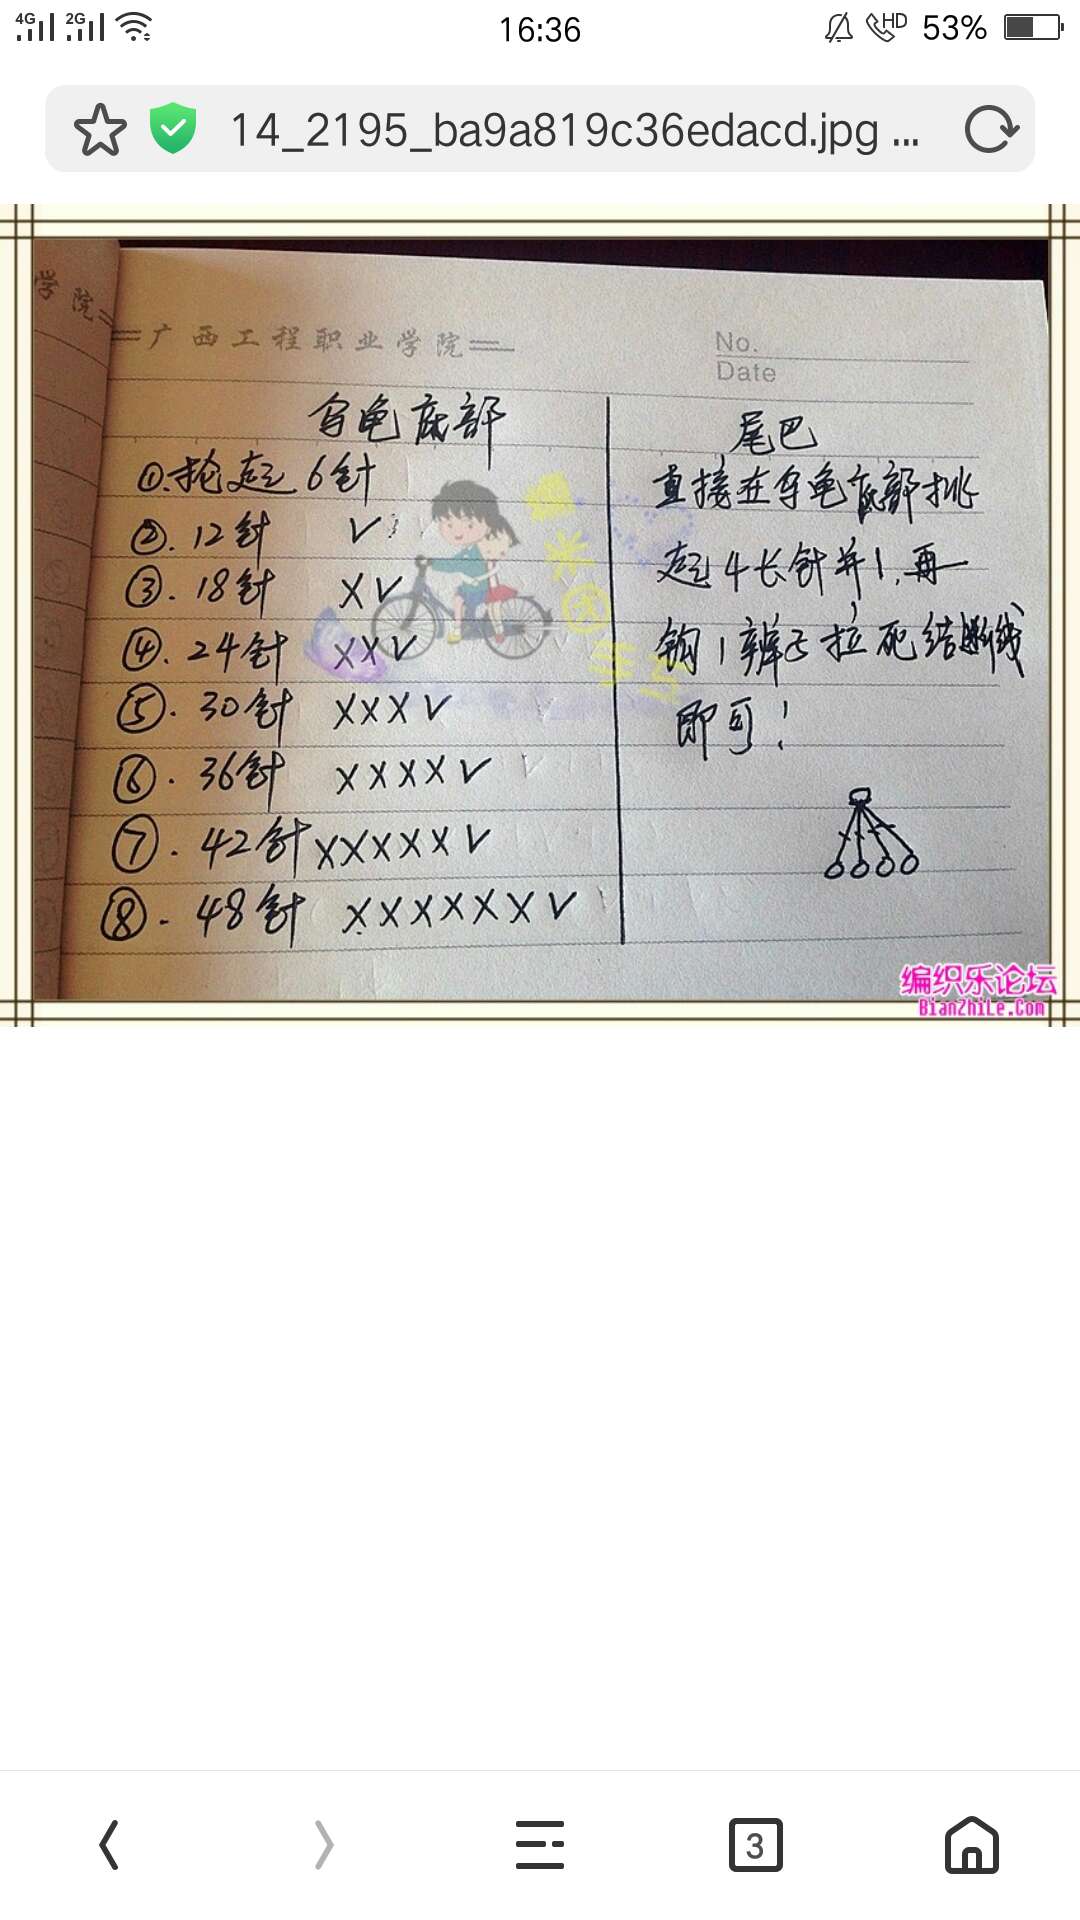 4G 2G 16:36 HD 53%
14_2195_ba9a819c36edacd.jpg ...
学院
广西工程职业学院
No.
Date
乌龟底部
①.抡起6针
②.12针 V
③.18针 XV
④.24针 XXV
⑤.30针 XXXV
⑥.36针 XXXXV
⑦.42针XXXXXV
⑧.48针 XXXXXXV
尾巴
直接在乌龟底部挑
起4长针并1,再
钩1辫子拉死结断线
即可!
编织乐论坛
BianZhiLe.Com
3